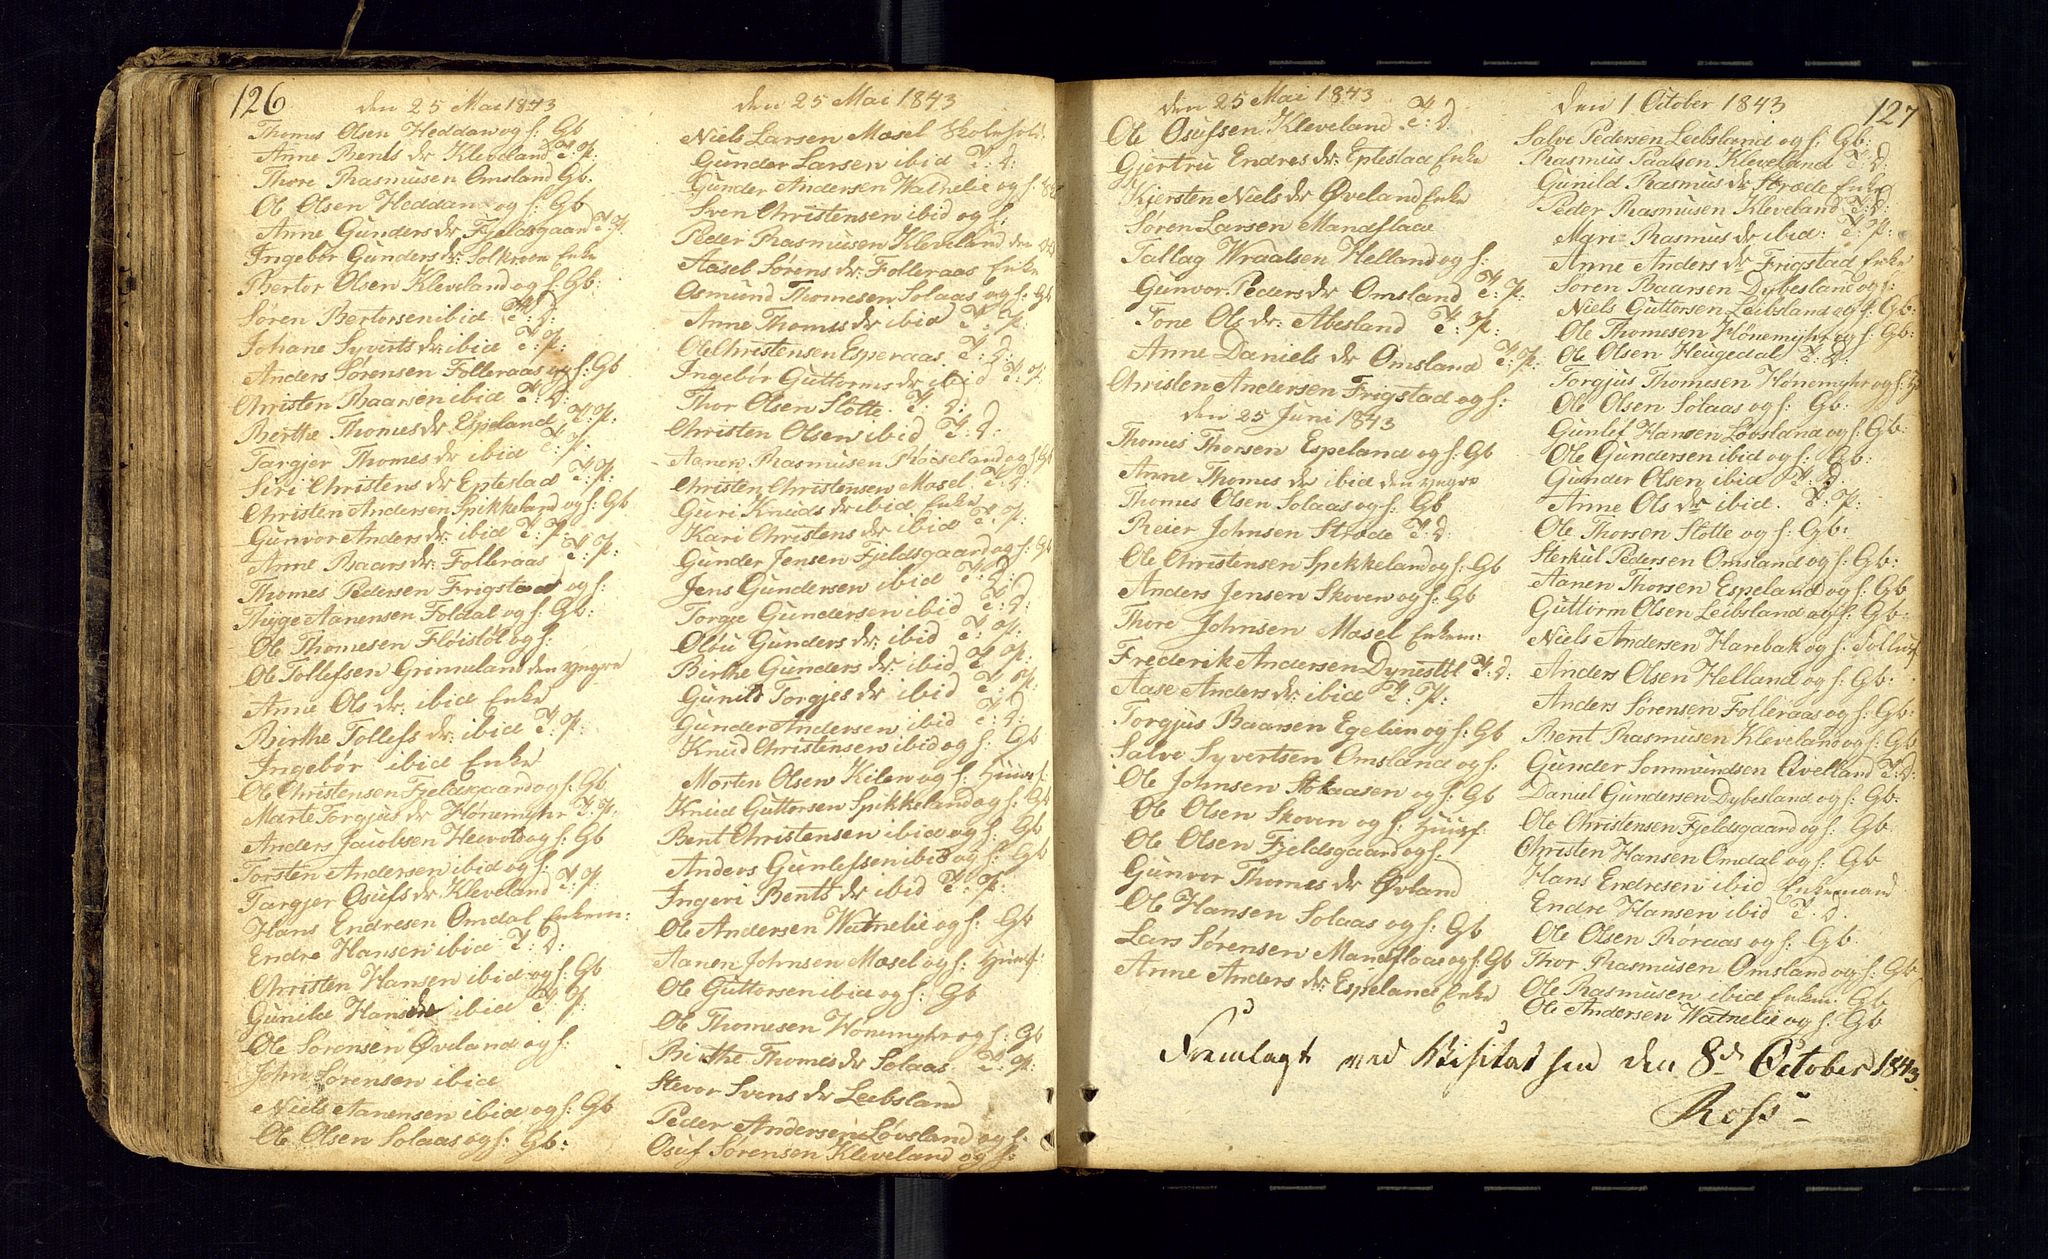 126
den 25 Mai 1843
Thomes Olsen Heddan og h: Gb
Anne Bents dr Kleveland T: P:
Thore Rasmusen Omsland Gb:
Ole Olsen Heddan og h: Gb
Anne Gunders dr Fjeldsgaard T: P:
Ingebør Gunders dr: Enke
Bertor Olsen Kleveland og h: Gb:
Søren Bertorsen ibid T: D:
Johane Syverts dr: ibid T: P:
Anders Sørensen Folleraas og h: Gb
Christen Baarsen ibid T: D:
Berthe Thomes dr Espeland T: P:
Targjer Thomes dr ibid T: P:
Siri Christens dr Eptestad T: P:
Christen Andersen Spikkeland og h: Gb
Gunvor Anders dr: ibid T: P:
Anne Baars dr: Folleraas T: P:
Thomes Pedersen Frigstad og h:
Thyge Aanensen Foldal og h: Gb:
Ole Thomesen Fløistøl og h:
Ole Tollefsen Grimeland den yngre
Anne Ols dr: ibid Enke
Birthe Tollefs dr: ibid T: P:
Ingebør ibid Enke
Ole Christensen Fjeldsgaard og h: Gb
Marte Torgjus dr Hønemyhr T: P:
Anders Jacobsen og h: Gb
Torsten Andersen ibid og h:
Targjer Osufs dr Kleveland T: P:
Hans Endresen Omdal Enkem:
Endre Hansen ibid T: D:
Christen Hansen ibid og h: Gb
Gunild Hans dr ibid T: P:
Ole Sørensen Øveland og h:
John Sørensen ibid
Niels Aanensen ibid og h: Gb
Ole Olsen Solaas og h: Gb:
den 25 Mai 1843
Niels Larsen Mosel
Gunder Larsen ibid T: D:
Gunder Andersen Watnelie og h:
Sven Christensen ibid og h:
Peder Rasmusen Kleveland den
Aasel Sørens dr: Folleraas Enke
Osmund Thomesen Solaas og h: Gb
Anne Thomes dr ibid T: P:
Ole Christensen Esperaas T: D:
Ingebør Guttorms dr ibid T: P:
Thor Olsen Slotte T: D:
Christen Olsen ibid T: D:
Aanen Rasmusen Roiseland og h: Gb
Christen Christensen Mosel T: D:
Guri Knuds dr ibid Enke
Kari Christens dr ibid T: P:
Gunder Jensen Fjeldsgaard og h: Gb
Jens Gundersen ibid T: D:
Torge Gundersen ibid T: D:
Olou Gunders dr: ibid T: P:
Birthe Gunders dr ibid T: P:
Gunild Torgjes dr ibid T: P:
Gunder Andersen ibid T: D:
Knud Christensen ibid og h: Gb
Morten Olsen Kilen og h: Huusf:
Knud Guttorsen Spikkeland og h: Gb
Bent Christensen ibid og h: Gb
Anders Gunlefsen ibid og h: Gb
Ingeri Bents dr ibid T: P:
Ole Andersen Watnelie og h: Gb
Aanen Johnsen Mosel og h: Huusf:
Ole Guttorsen ibid og h: Gb
Ole Thomesen Hønemyhr og h: Gb
Birthe Thomes dr Solaas T: P:
Stevor Svens dr Leibsland
Peder Andersen Løvsland og h:
Osuf Sørensen Kleveland og h:
den 25 Mai 1843
Ole Osufsen Kleveland T: D:
Gjertru Endres dr: Eptestad Enke
Kjersten Niels dr Øveland Enke
Søren Larsen Mandflaae
Tallag Wraalsen Helland og h:
Gunvor Peders dr Omsland T: P:
Tone Ols dr: Abesland T: P:
Anne Daniels dr Omsland T: P:
Christen Andersen Frigstad og h:
den 25 Juni 1843
Thomes Thorsen Espeland og h: Gb
Anne Thomes dr ibid den yngre
Thomes Olsen Solaas og h: Gb
Reier Johnsen Strøde T: D:
Ole Christensen Spikkeland og h: Gb
Anders Jensen Skoven og h: Gb
Thore Johnsen Mosel Enkem:
Frederik Andersen Dynistøl T: D:
Aase Anders dr: ibid T: P:
Torgjus Baarsen Egelien og h: Gb
Salve Syvertsen Omsland og h:
Ole Johnsen og h: Gb
Ole Olsen Skoven og h: Huusf:
Ole Olsen Fjeldsgaard og h:
Gunvor Thomes dr Øvland
Ole Hansen Solaas og h: Gb
Lars Sørensen Mandflaae og h: Gb
Anne Anders dr: Espeland Enke
den 1 October 1843
127
Salve Pedersen Leibsland og h: Gb:
Rasmus Paalsen Kleveland T: D:
Gunild Rasmus dr Strøde Enke
Peder Rasmusen Kleveland T: D:
Mari Rasmus dr ibid: T: P:
Anne Anders dr Frigstad Enke
Søren Baarsen Dybesland og h:
Niels Guttorsen Leibsland og h: Gb:
Ole Thomesen Hønemyhr og h: Gb:
Ole Olsen Heugedal T: D:
Torgjus Thomesen Hønemyhr og h: Gb
Ole Olsen Solaas og h: Gb:
Gunlef Hansen Løvsland og h: Gb:
Ole Gundersen ibid og h: Gb:
Gunder Olsen ibid T: D:
Anne Ols dr ibid. T: P:
Ole Thorsen Slotte og h: Gb:
Sterkul Pedersen Omsland og h: Gb:
Aanen Thorsen Espeland og h: Gb
Guttorm Olsen Leibsland og h: Gb:
Niels Andersen Hanebak og h:
Anders Olsen Helland og h: Gb:
Anders Sørensen Folleraas og h: Gb:
Bent Rasmusen Kleveland og h: Gb
Gunder Sommundsen Qvelland T: D:
Daniel Gundersen Dybesland og h: Gb:
Ole Christensen Fjeldsgaard og h: Gb
Christen Hansen Omdal og h: Gb
Hans Endresen ibid Enkemand
Endre Hansen ibid T: D:
Ole Olsen Røraas og h: Gb
Thor Rasmusen Omsland og h: Gb
Ole Rasmusen ibid Enkem: Gb
Ole Andersen Watnelie og h: Gb
Fremlagt ved Visitatsen den 8de October 1843.